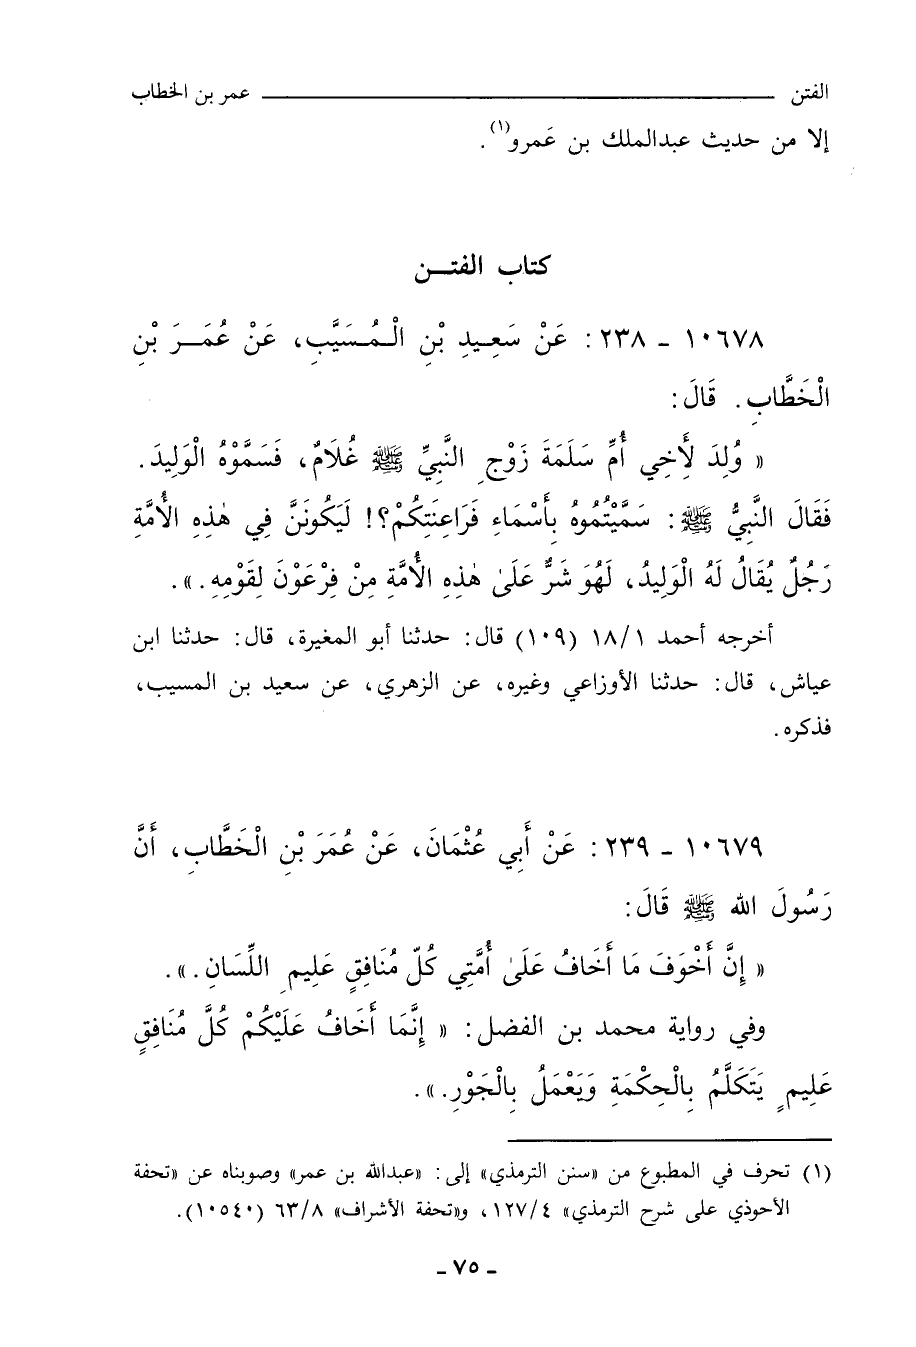 الفتن ــــــــــــــــــــ عمر بن الخطاب
إلا من حديث عبدالملك بن عَمرو(١).
كتاب الفتـــن
١٠٦٧٨ - ٢٣٨ : عَنْ سَعِـيدِ بْنِ الْـمُـسَيَّبِ، عَنْ عُمَــرَ بْنِ
الْخَطَّابِ. قَالَ:
« وُلِدَ لأَخِي أُمِّ سَلَمَةَ زَوْجِ النَّبِيِّ ﷺ غُلَامٌ، فَسَمَّوْهُ الْوَلِيدَ.
فَقَالَ النَّبِيُّ ﷺ: سَمَّيْتُمُوهُ بِأَسْمَاءِ فَرَاعِنَتِكُمْ؟! لَيَكُونَنَّ فِي هٰذِهِ الأُمَّةِ
رَجُلٌ يُقَالُ لَهُ الْوَلِيدُ، لَهُوَ شَرٌّ عَلَىٰ هٰذِهِ الأُمَّةِ مِنْ فِرْعَوْنَ لِقَوْمِهِ.».
أخرجه أحمد ١٨/١ (١٠٩) قال: حدثنا أبو المغيرة، قال: حدثنا ابن
عياش، قال: حدثنا الأوزاعي وغيره، عن الزهري، عن سعيد بن المسيب،
فذكره.
١٠٦٧٩ - ٢٣٩ : عَنْ أَبِي عُثْمَانَ، عَنْ عُمَرَ بْنِ الْخَطَّابِ، أَنَّ
رَسُولَ الله ﷺ قَالَ:
« إِنَّ أَخْوَفَ مَا أَخَافُ عَلَىٰ أُمَّتِي كُلّ مُنَافِقٍ عَلِيمِ اللِّسَانِ.».
وفي رواية محمد بن الفضل: « إِنَّمَا أَخَافُ عَلَيْكُمْ كُلَّ مُنَافِقٍ
عَلِيمٍ يَتَكَلَّمُ بِالْحِكْمَةِ وَيَعْمَلُ بِالْجَوْرِ.».
(١) تحرف في المطبوع من «سنن الترمذي» إلى: «عبدالله بن عمر» وصوبناه عن «تحفة
الأحوذي على شرح الترمذي» ١٢٧/٤، و«تحفة الأشراف» ٦٣/٨ (١٠٥٤٠).
- ٧٥ -